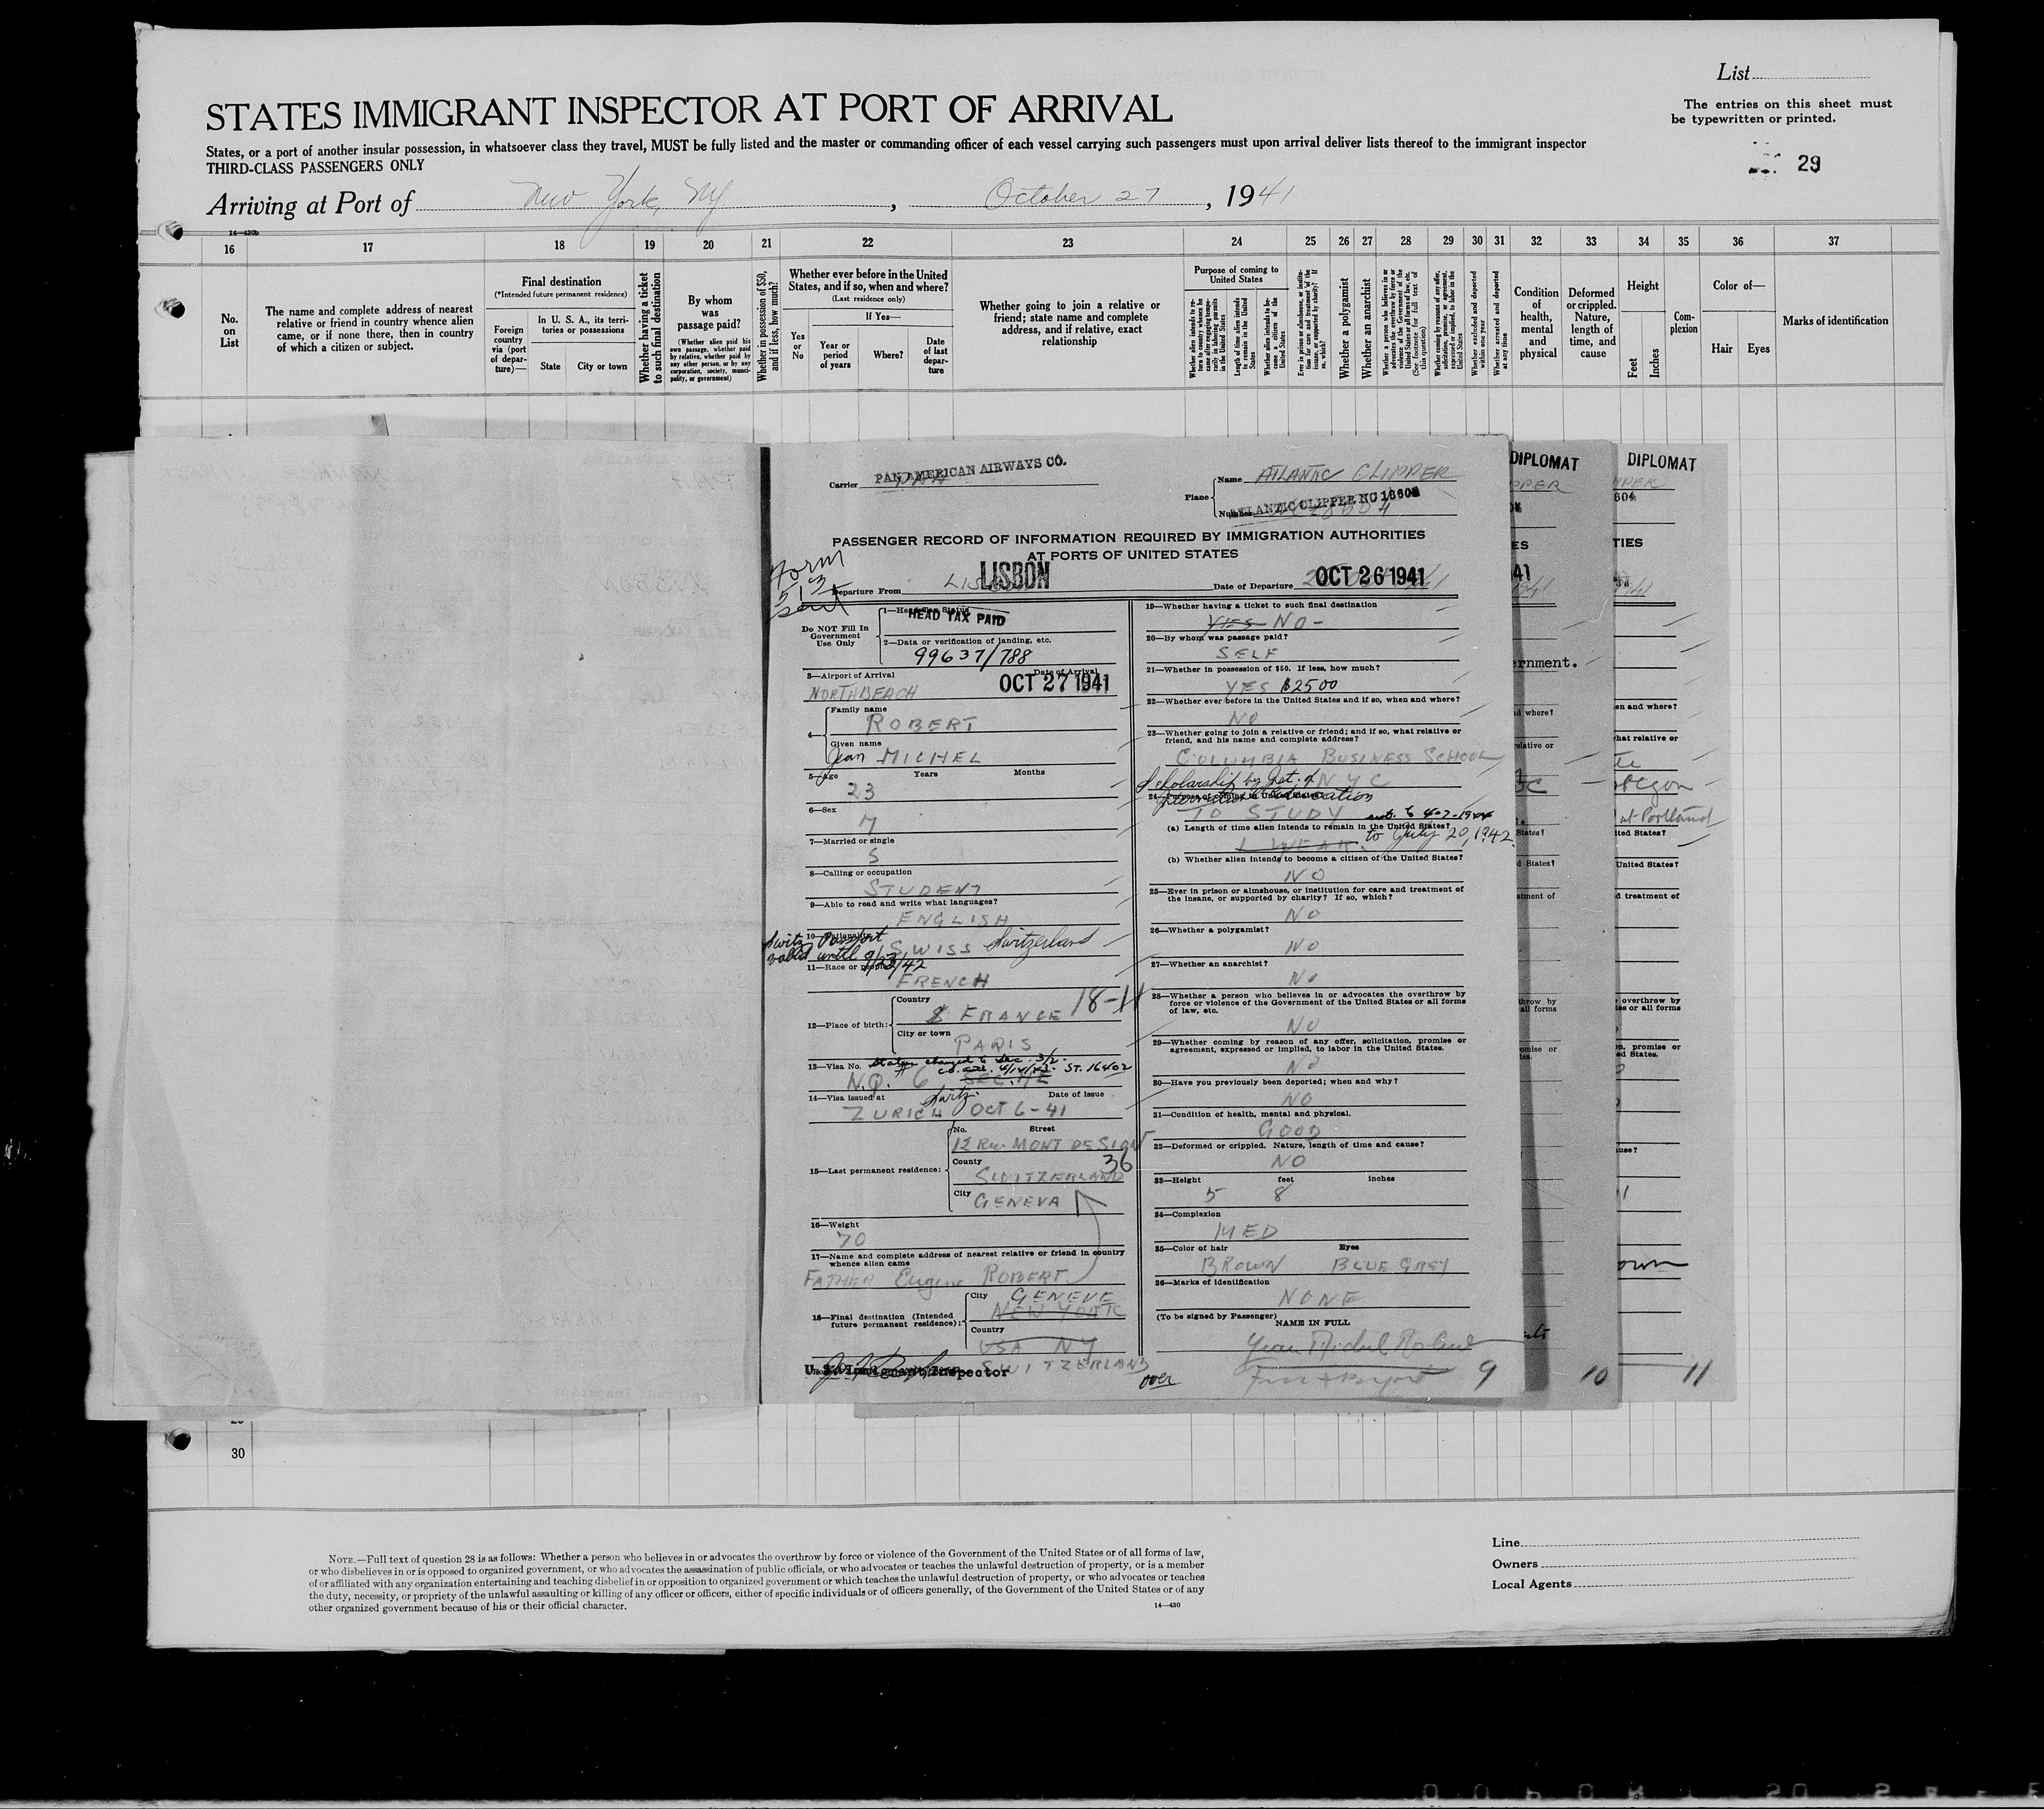 List
STATES IMMIGRANT INSPECTOR AT PORT OF ARRIVAL
The entries on this sheet must
be typewritten or printed.
States, or a port of another insular possession, in whatsoever class they travel, MUST be fully listed and the master or commanding officer of each vessel carrying such passengers must upon arrival deliver lists thereof to the immigrant inspector
THIRD-CLASS PASSENGERS ONLY
29
Arriving at Port of New York, NY, October 27, 1941
14—430b
16 17 18 19 20 21 22 23 24 25 26 27 28 29 30 31 32 33 34 35 36 37
No. on List
The name and complete address of nearest relative or friend in country whence alien came, or if none there, then in country of which a citizen or subject.
Final destination
(*Intended future permanent residence)
Foreign country via (port of departure)—
In U. S. A., its territories or possessions
State
City or town
Whether having a ticket to such final destination
By whom was passage paid?
(Whether alien paid his own passage, whether paid by relative, whether paid by any other person, or by any corporation, society, municipality, or government)
Whether in possession of $50, and if less, how much?
Whether ever before in the United States, and if so, when and where?
(Last residence only)
Yes or No
If Yes—
Year or period of years
Where?
Date of last departure
Whether going to join a relative or friend; state name and complete address, and if relative, exact relationship
Purpose of coming to United States
Whether alien intends to return to country whence he came after engaging temporarily in laboring pursuits in the United States
Length of time alien intends to remain in the United States
Whether alien intends to become a citizen of the United States
Ever in prison or almshouse, or institution for care and treatment of the insane, or supported by charity? If so, which?
Whether a polygamist
Whether an anarchist
Whether a person who believes in or advocates the overthrow by force or violence of the Government of the United States or all forms of law, etc. (See footnote for full text of this question)
Whether coming by reasons of any offer, solicitation, promise, or agreement, expressed or implied, to labor in the United States
Whether excluded and deported within one year
Whether arrested and deported at any time
Condition of health, mental and physical
Deformed or crippled. Nature, length of time, and cause
Height
Feet
Inches
Complexion
Color of—
Hair
Eyes
Marks of identification
Carrier PAN AMERICAN AIRWAYS CO.
Plane
Name ATLANTIC CLIPPER
Number ATLANTIC CLIPPER NC 18604
PASSENGER RECORD OF INFORMATION REQUIRED BY IMMIGRATION AUTHORITIES
AT PORTS OF UNITED STATES
Form
Sent
Departure From LISBON
Date of Departure OCT 26 1941
Do NOT Fill In
Government
Use Only
1—Head Tax Status
HEAD TAX PAID
2—Data or verification of landing, etc.
99637/788
3—Airport of Arrival
Date of Arrival
NORTH BEACH OCT 27 1941
4—
Family name
ROBERT
Given name
Jean MICHEL
5—Age Years Months
23
6—Sex
M
7—Married or single
S
8—Calling or occupation
STUDENT
9—Able to read and write what languages?
ENGLISH
10—Nationality
Switz. Passport
valid until 9/23/42
SWISS Switzerland
11—Race or people
FRENCH
12—Place of birth:
Country
FRANCE 18-11
City or town
PARIS
13—Visa No.
Status changed to Sec. 3/2.
ST. 16402
N.Q. 6
14—Visa issued at Date of issue
ZURICH Switz. OCT 6-41
15—Last permanent residence:
No. Street
12 Rue MONT DE SION
County 36
SWITZERLAND
City
GENEVA
16—Weight
70
17—Name and complete address of nearest relative or friend in country
whence alien came
FATHER Eugene ROBERT
18—Final destination (Intended
future permanent residence):
City GENEVE
NEW YORK
Country
USA NY
SWITZERLAND
U. S. Immigrant Inspector
over
19—Whether having a ticket to such final destination
YES NO -
20—By whom was passage paid?
SELF
21—Whether in possession of $50. If less, how much?
YES $2500
22—Whether ever before in the United States and if so, when and where?
NO
23—Whether going to join a relative or friend; and if so, what relative or
friend, and his name and complete address?
COLUMBIA BUSINESS SCHOOL
NYC
Scholarship by Inst. of
International Education
24—Purpose of coming to United States
TO STUDY
(a) Length of time alien intends to remain in the United States?
1 YEAR to July 20, 1942
(b) Whether alien intends to become a citizen of the United States?
NO
25—Ever in prison or almshouse, or institution for care and treatment of
the insane, or supported by charity? If so, which?
NO
26—Whether a polygamist?
NO
27—Whether an anarchist?
NO
28—Whether a person who believes in or advocates the overthrow by
force or violence of the Government of the United States or all forms
of law, etc.
NO
29—Whether coming by reason of any offer, solicitation, promise or
agreement, expressed or implied, to labor in the United States.
NO
30—Have you previously been deported; when and why?
NO
31—Condition of health, mental and physical.
GOOD
32—Deformed or crippled. Nature, length of time and cause?
NO
33—Height feet inches
5 8
34—Complexion
MED
35—Color of hair Eyes
BROWN BLUE GREY
36—Marks of identification
NONE
(To be signed by Passenger)
NAME IN FULL
Jean Michel Robert
9
DIPLOMAT
PPER
ES
41
ernment.
d where?
elative or
States?
d States?
atment of
hrow by
all forms
omise or
tes.
10
DIPLOMAT
PPER
604
TIES
en and where?
hat relative or
Oregon
at Portland
ited States?
United States?
d treatment of
overthrow by
tes or all forms
n, promise or
ed States.
ause?
own
11
30
NOTE.—Full text of question 28 is as follows: Whether a person who believes in or advocates the overthrow by force or violence of the Government of the United States or of all forms of law,
or who disbelieves in or is opposed to organized government, or who advocates the assassination of public officials, or who advocates or teaches the unlawful destruction of property, or is a member
of or affiliated with any organization entertaining and teaching disbelief in or opposition to organized government or which teaches the unlawful destruction of property, or who advocates or teaches
the duty, necessity, or propriety of the unlawful assaulting or killing of any officer or officers, either of specific individuals or of officers generally, of the Government of the United States or of any
other organized government because of his or their official character.
14—430
Line
Owners
Local Agents